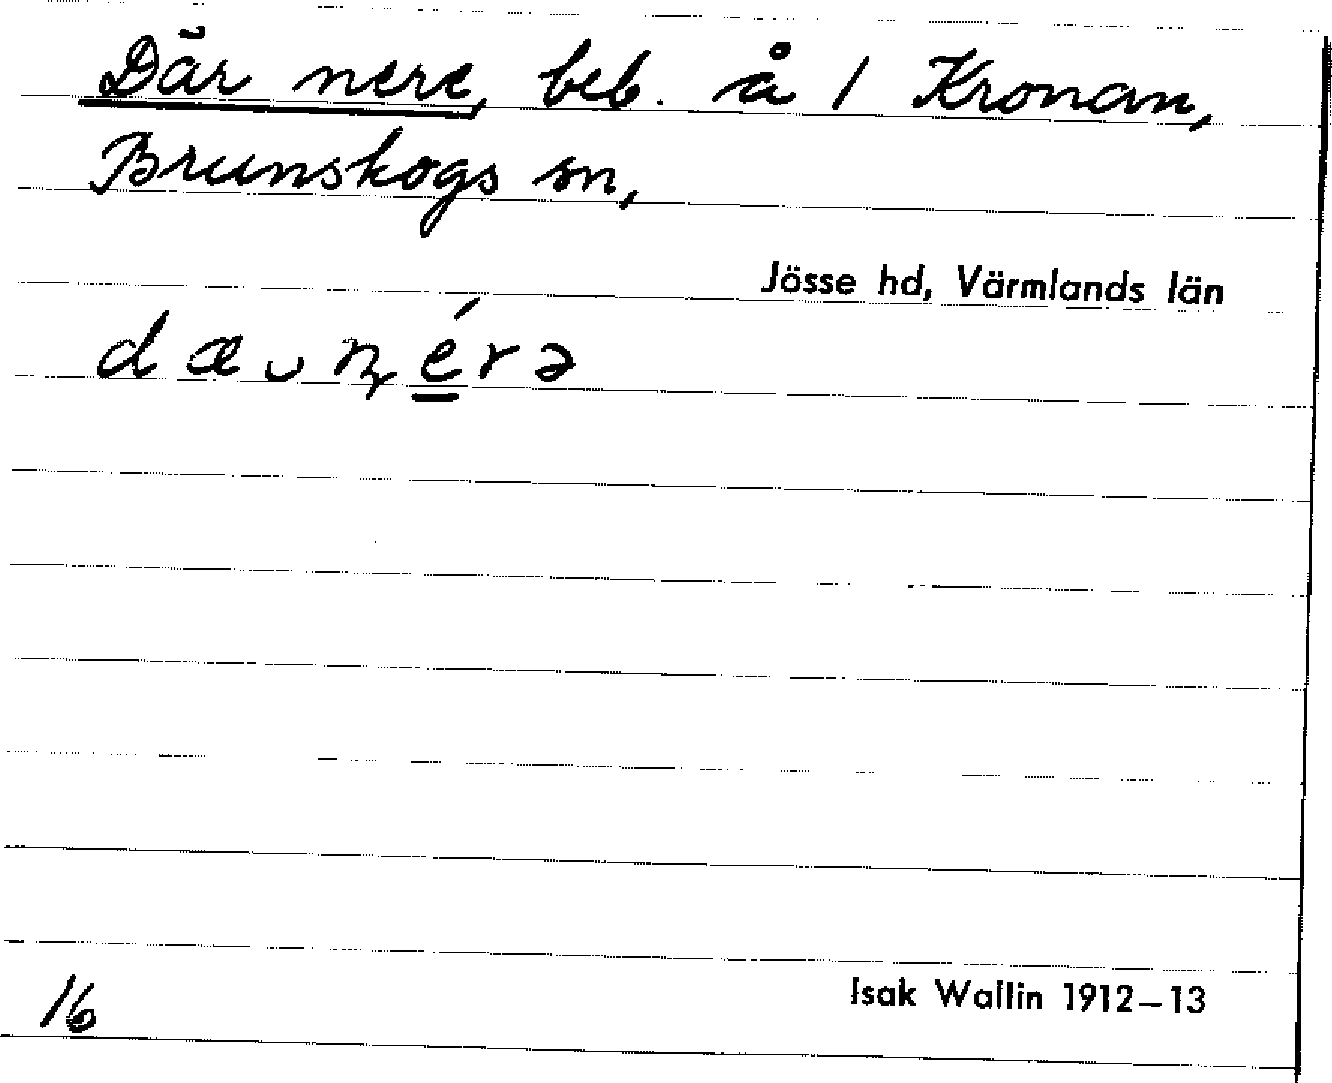 Där nere, beb. å 1 Kronan,
Brunskogs sn,
Jösse hd, Värmlands län
dæ◡ɳérə
16
Isak Wallin 1912–13